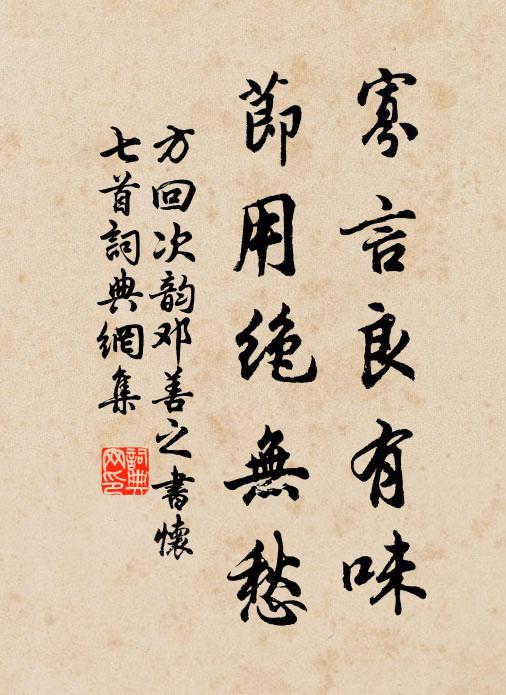 寡言良有味
節用绝無愁
方回次韵邓善之書懷
七首詞典網集
詞典网印